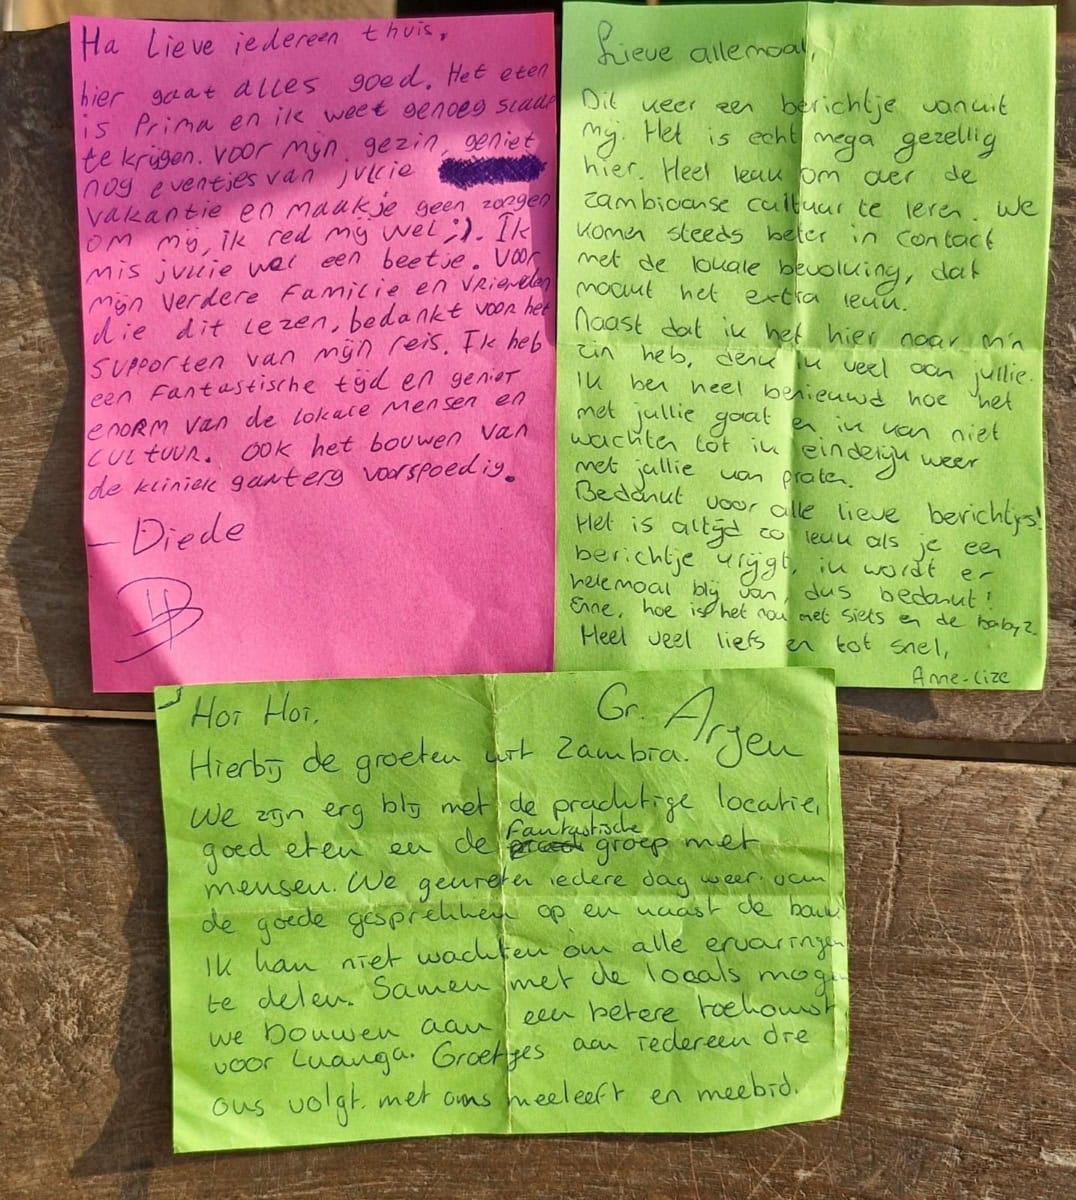 Ha Lieve iedereen thuis,
hier gaat alles goed. Het eten
is Prima en ik weet genoeg slaap
te krijgen. voor mijn gezin, geniet
nog eventjes van jullie
vakantie en maak je geen zorgen
om mij, ik red mij wel ;). Ik
mis jullie wel een beetje. Voor
mijn verdere Familie en vrienden
die dit lezen, bedankt voor het
supporten van mijn reis. Ik heb
een Fantastische tijd en geniet
enorm van de lokale mensen en
cultuur. Ook het bouwen van
de kliniek gaat erg voorspoedig.
- Diede
Lieve allemaal,
Dit keer een berichtje vanuit
mij. Het is echt mega gezellig
hier. Heel leuk om over de
zambiaanse cultuur te leren. We
komen steeds beter in contact
met de lokale bevolking, dat
maakt het extra leuk.
Naast dat ik het hier naar m'n
zin heb, denk ik veel aan jullie.
Ik ben heel benieuwd hoe het
met jullie gaat en ik kan niet
wachten tot ik eindelijk weer
met jullie kan praten.
Bedankt voor alle lieve berichtjes!
Het is altijd zo leuk als je een
berichtje krijgt, ik wordt er
helemaal blij van, dus bedankt!
Enne, hoe is het nou met Siets en de baby?
Heel veel liefs en tot snel,
Anne-Lize
Hoi Hoi, Gr. Arjen
Hierbij de groeten uit Zambia.
We zijn erg blij met de prachtige locatie,
goed eten en de fantastische groep met
mensen. We genieten iedere dag weer van
de goede gesprekken op en naast de bouw
Ik kan niet wachten om alle ervaringen
te delen. Samen met de locals mogen
we bouwen aan een betere toekomst
voor Luanga. Groetjes aan iedereen die
ons volgt. met ons meeleeft en meebid.